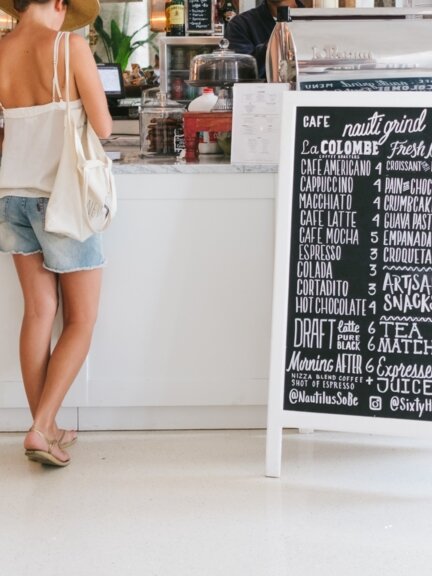 CAFE
nauti grind
La COLOMBE
COFFEE ROASTERS
CAFE AMERICANO 4
CAPPUCCINO 4
MACCHIATO 4
CAFE LATTE 4
CAFE MOCHA 5
ESPRESSO 3
COLADA 3
CORTADITO 3
HOT CHOCOLATE 4
DRAFT latte 6
PURE BLACK 6
Morning AFTER 6
NIZZA BLEND COFFEE +
SHOT OF ESPRESSO
@NautilusSoBe
Fresh
CROISSANT
PAIN
CRUMBCAKE
GUAVA PAST
EMPANADA
CROQUETA
ARTISA
SNACKS
TEA
MATCH
Expresse
JUICE
@SixtyH